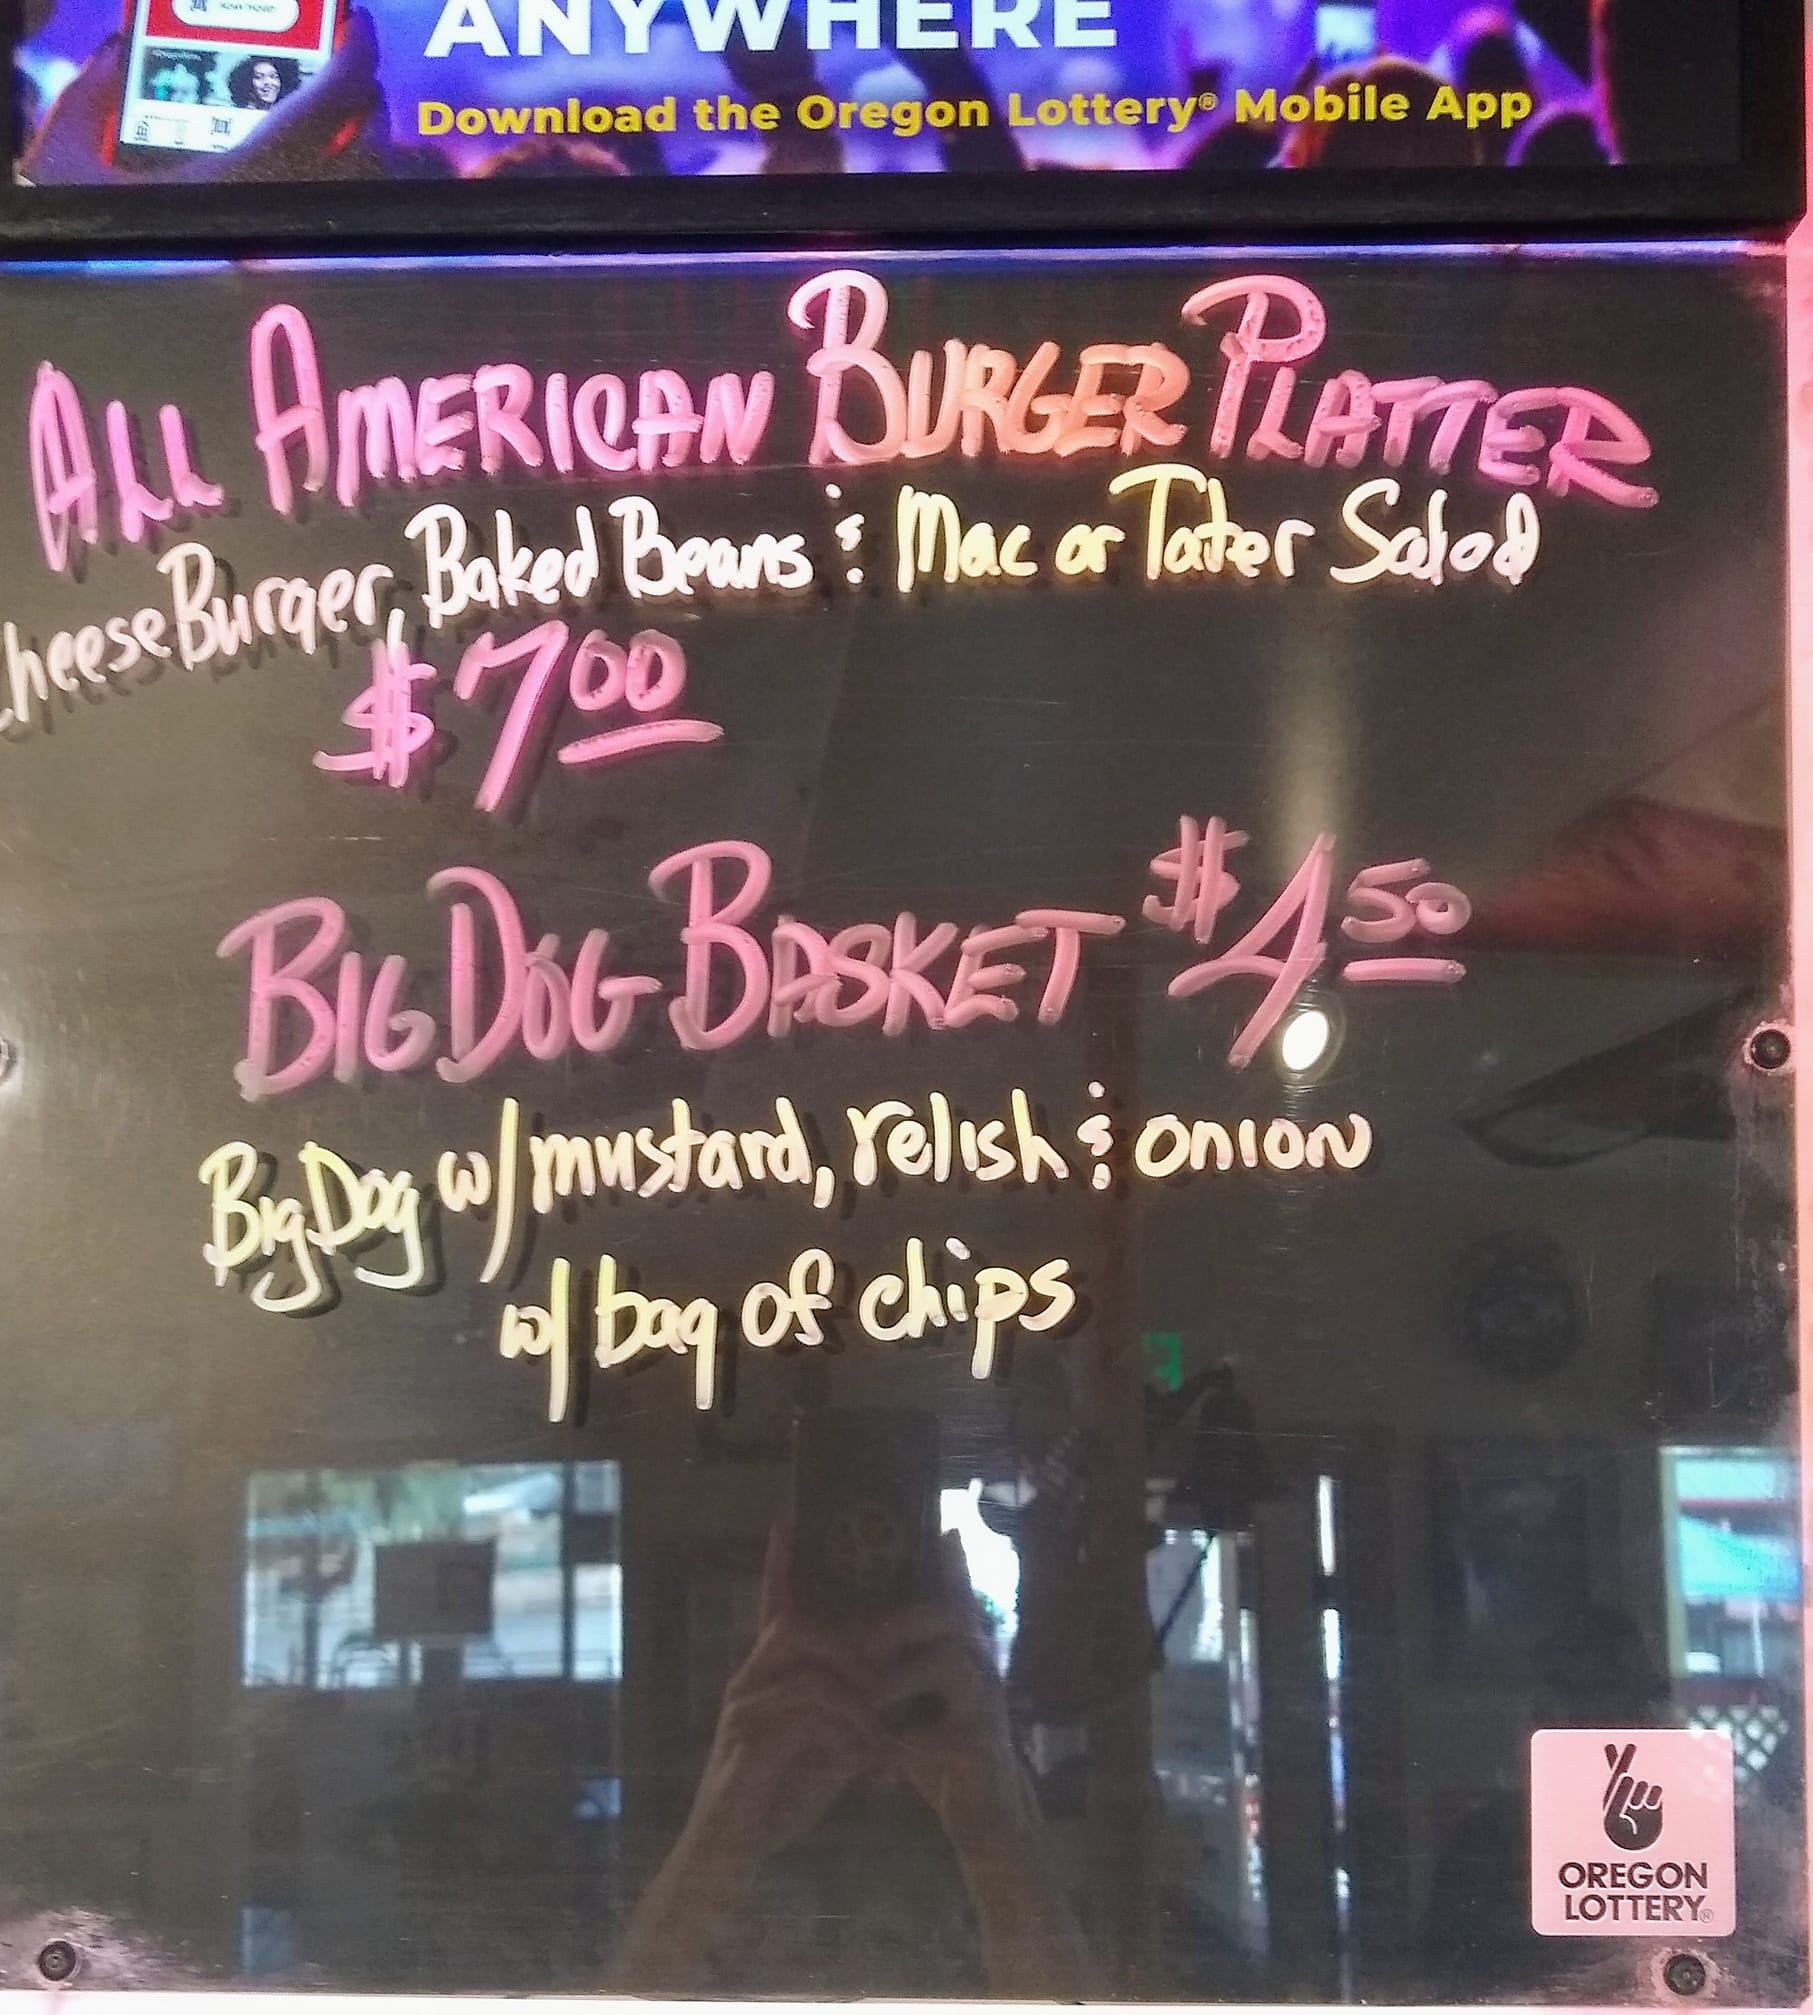 ANYWHERE
Download the Oregon Lottery® Mobile App
ALL AMERICAN BURGER PLATTER
CheeseBurger, Baked Beans & Mac or Tater Salad
$7.00
BIG DOG BASKET $4.50
Big Dog w/ mustard, relish & onion
w/ bag of chips
OREGON
LOTTERY®